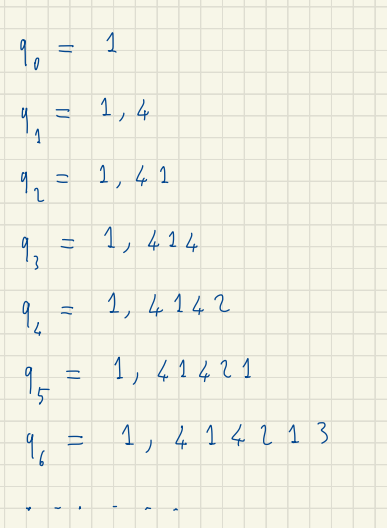 q₀ = 1
q₁ = 1,4
q₂ = 1,41
q₃ = 1,414
q₄ = 1,4142
q₅ = 1,41421
q₆ = 1,414213
. . . . . .